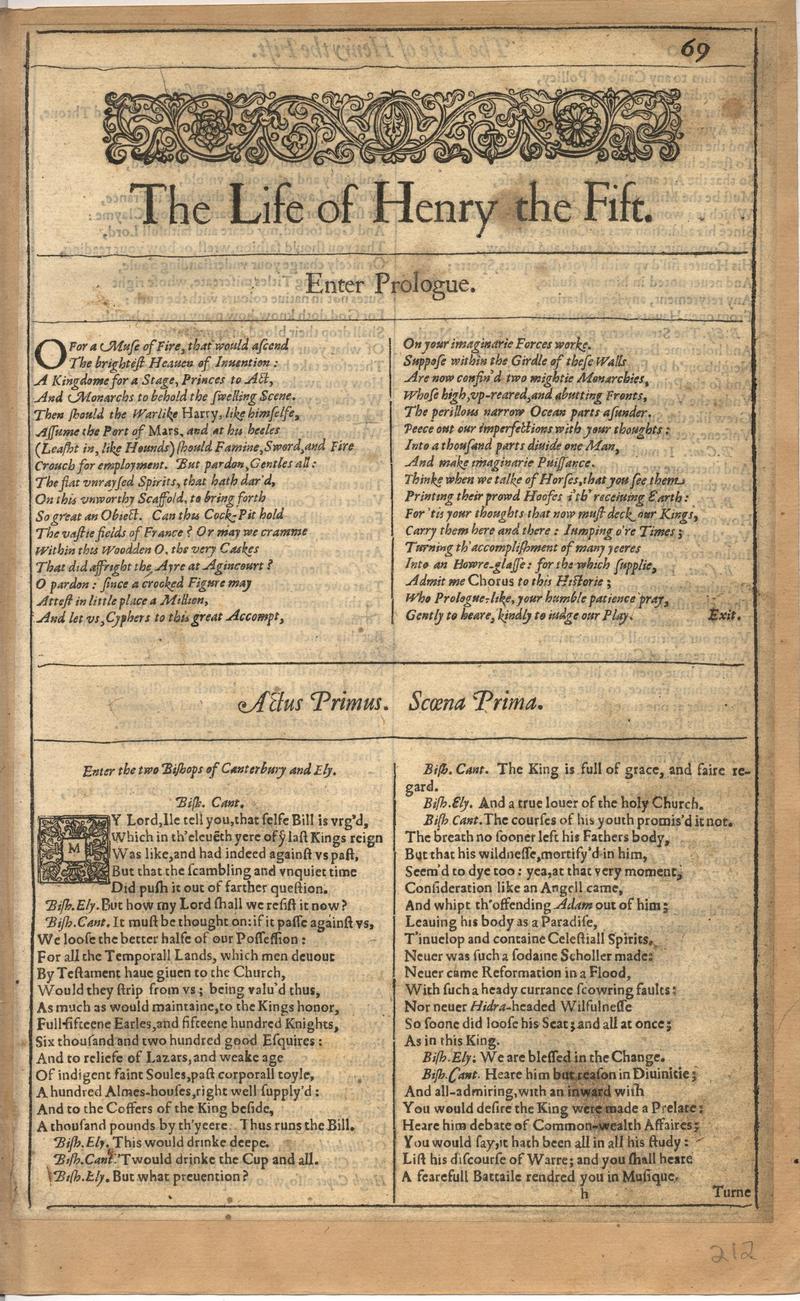 69
The Life of Henry the Fift.
Enter Prologue.
O For a Muse of Fire, that would ascend
The brightest Heauen of Inuention :
A Kingdome for a Stage, Princes to Act,
And Monarchs to behold the swelling Scene.
Then should the Warlike Harry, like himselfe,
Assume the Port of Mars, and at his heeles
(Leasht in, like Hounds) should Famine, Sword, and Fire
Crouch for employment. But pardon, Gentles all :
The flat vnraysed Spirits, that hath dar'd,
On this vnworthy Scaffold, to bring forth
So great an Obiect. Can this Cock-Pit hold
The vastie fields of France ? Or may we cramme
Within this Woodden O, the very Caskes
That did affright the Ayre at Agincourt ?
O pardon : since a crooked Figure may
Attest in little place a Million,
And let vs, Cyphers to this great Accompt,
On your imaginarie Forces worke.
Suppose within the Girdle of these Walls
Are now confin'd two mightie Monarchies,
Whose high, vp-reared, and abutting Fronts,
The perillous narrow Ocean parts asunder.
Peece out our imperfections with your thoughts :
Into a thousand parts diuide one Man,
And make imaginarie Puissance.
Thinke when we talke of Horses, that you see them
Printing their prowd Hoofes i'th' receiuing Earth :
For 'tis your thoughts that now must deck our Kings,
Carry them here and there : Iumping o're Times ;
Turning th'accomplishment of many yeeres
Into an Howre-glasse : for the which supplie,
Admit me Chorus to this Historie ;
Who Prologue-like, your humble patience pray,
Gently to heare, kindly to iudge our Play. Exit.
Actus Primus. Scœna Prima.
Enter the two Bishops of Canterbury and Ely.
Bish. Cant.
MY Lord, Ile tell you, that selfe Bill is vrg'd,
Which in th'eleuẽth yere of yͤ last Kings reign
Was like, and had indeed against vs past,
But that the scambling and vnquiet time
Did push it out of farther question.
Bish. Ely. But how my Lord shall we resist it now ?
Bish. Cant. It must be thought on : if it passe against vs,
We loose the better halfe of our Possession :
For all the Temporall Lands, which men deuout
By Testament haue giuen to the Church,
Would they strip from vs ; being valu'd thus,
As much as would maintaine, to the Kings honor,
Full fifteene Earles, and fifteene hundred Knights,
Six thousand and two hundred good Esquires :
And to reliefe of Lazars, and weake age
Of indigent faint Soules, past corporall toyle,
A hundred Almes-houses, right well supply'd :
And to the Coffers of the King beside,
A thousand pounds by th'yeere. Thus runs the Bill.
Bish. Ely. This would drinke deepe.
Bish. Cant. 'Twould drinke the Cup and all.
Bish. Ely. But what preuention ?
Bish. Cant. The King is full of grace, and faire re-
gard.
Bish. Ely. And a true louer of the holy Church.
Bish Cant. The courses of his youth promis'd it not.
The breath no sooner left his Fathers body,
But that his wildnesse, mortify'd in him,
Seem'd to dye too : yea, at that very moment,
Consideration like an Angell came,
And whipt th'offending Adam out of him ;
Leauing his body as a Paradise,
T'inuelop and containe Celestiall Spirits.
Neuer was such a sodaine Scholler made :
Neuer came Reformation in a Flood,
With such a heady currance scowring faults :
Nor neuer Hidra-headed Wilfulnesse
So soone did loose his Seat ; and all at once ;
As in this King.
Bish. Ely. We are blessed in the Change.
Bish. Cant. Heare him but reason in Diuinitie ;
And all-admiring, with an inward wish
You would desire the King were made a Prelate :
Heare him debate of Common-wealth Affaires ;
You would say, it hath been all in all his study :
List his discourse of Warre ; and you shall heare
A fearefull Battaile rendred you in Musique.
h Turne
212